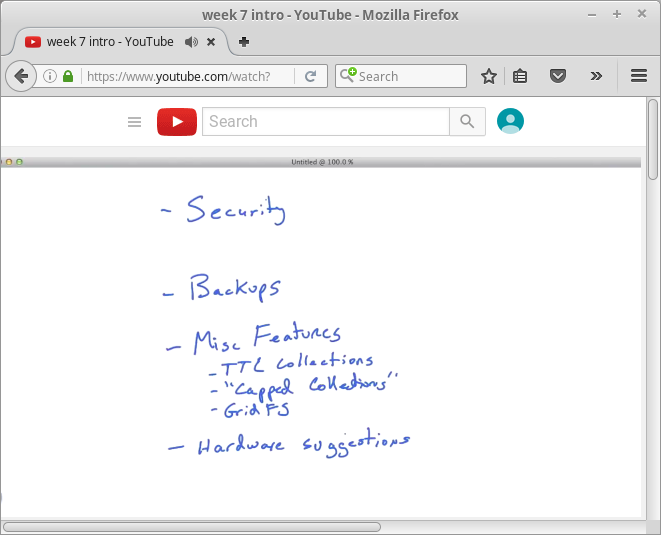 week 7 intro - YouTube - Mozilla Firefox
week 7 intro - YouTube
https://www.youtube.com/watch?
Search
Search
Untitled @ 100.0 %
- Security
- Backups
- Misc Features
- TTL Collections
- "Capped Collections"
- GridFS
- Hardware suggestions